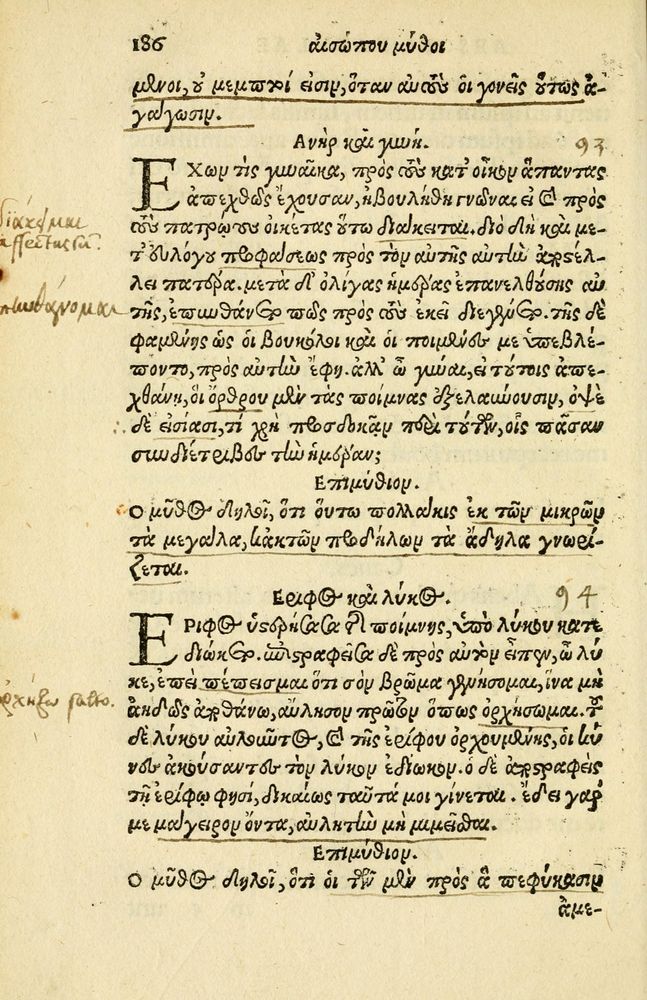 186 αἰσώπου μῦθοι
μενοι, οὐ μεμπτοί εἰσιν, ὅταν αὐτοὺς οἱ γονεῖς οὕτως ἀ-
γάγωσιν.
Ανὴρ καὶ γυνή. 93
ΕΧων τὶς γυναῖκα, πρὸς τοὺς κατ' οἶκον ἅπαντας
ἀπεχθῶς ἔχουσαν, ἠβουλήθη γνῶναι εἰ καὶ πρὸς
τοὺς πατρῴους οἰκέτας οὕτω διάκειται. διὸ δὴ καὶ με-
τ' εὐλόγου προφάσεως πρὸς τὸν αὐτῆς αὐτὴν ἀποστέλ-
λει πατέρα. μετὰ δ' ὀλίγας ἡμέρας ἐπανελθούσης αὐ
τῆς, ἐπυνθάνετο πῶς πρὸς τοὺς ἐκεῖ διεγένετο. τῆς δὲ
φαμένης ὡς οἱ βουκόλοι καὶ οἱ ποιμένες με ὑπεβλέ-
ποντο, πρὸς αὐτὴν ἔφη. ἀλλ' ὦ γύναι, εἰ τούτοις ἀπε-
χθάνῃ, οἳ ὄρθρου μὲν τὰς ποίμνας ἐξελαύνουσιν, ὀψὲ
δὲ εἰσίασι, τί χρὴ προσδοκᾷν περὶ τούτων, οἷς πᾶσαν
συνδιέτριβες τὴν ἡμέραν;
Επιμύθιον.
Ο μῦθος δηλοῖ, ὅτι οὕτω πολλάκις ἐκ τῶν μικρῶν
τὰ μεγάλα, κἀκ τῶν προδήλων τὰ ἄδηλα γνωρί-
ζεται.
Εριφος καὶ λύκος. 94
ΕΡΙΦος ὑστερήσασα ἀπὸ ποίμνης, ὑπὸ λύκου κατε
διώκετο. ἐπιστραφεῖσα δὲ πρὸς αὐτὸν εἶπεν, ὦ λύ
κε, ἐπεὶ πέπεισμαι ὅτι σὸν βρῶμα γενήσομαι, ἵνα μὴ
ἀηδῶς ἀποθάνω, αὔλησον πρῶτον ὅπως ὀρχήσωμαι. τοῦ
δὲ λύκου αὐλοῦντος, καὶ τῆς ἐρίφου ὀρχουμένης, οἱ κύ
νες ἀκούσαντες τὸν λύκον ἐδίωκον. ὁ δὲ ἀποστραφεὶς
τῇ ἐρίφῳ φησί, δικαίως ταῦτά μοι γίνεται. ἔδει γάρ
με μάγειρον ὄντα, αὐλητὴν μὴ μιμεῖσθαι.
Επιμύθιον.
Ο μῦθος δηλοῖ, ὅτι οἱ τῶν μὲν πρὸς ἃ πεφύκασιν
ἀμε-
διάκειμαι
affectus su͂.
πυνθάνομαι
ὀρχέω salto.